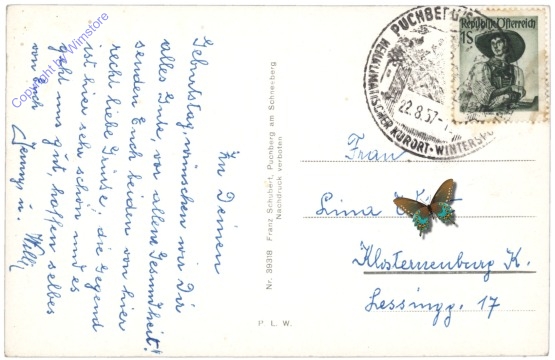 Zu Deinem
Geburtstag, wünschen wir Dir
alles Gute, vor allem Gesundheit!
senden Euch beiden von hier
recht liebe Grüße, die Gegend
ist hier sehr schön und es
geht uns gut, hoffen selbes
von Euch
Jenny u. Willi
Copyright by Wimstore
Nr. 39318 Franz Schubert, Puchberg am Schneeberg
Nachdruck verboten
P. L. W.
PUCHBERG
22.8.57
HEILKLIMATISCHER KURORT-WINTERSPO
Republik Österreich
1S
Frau
Lina
Klosterneuburg K.
Lessingg. 17